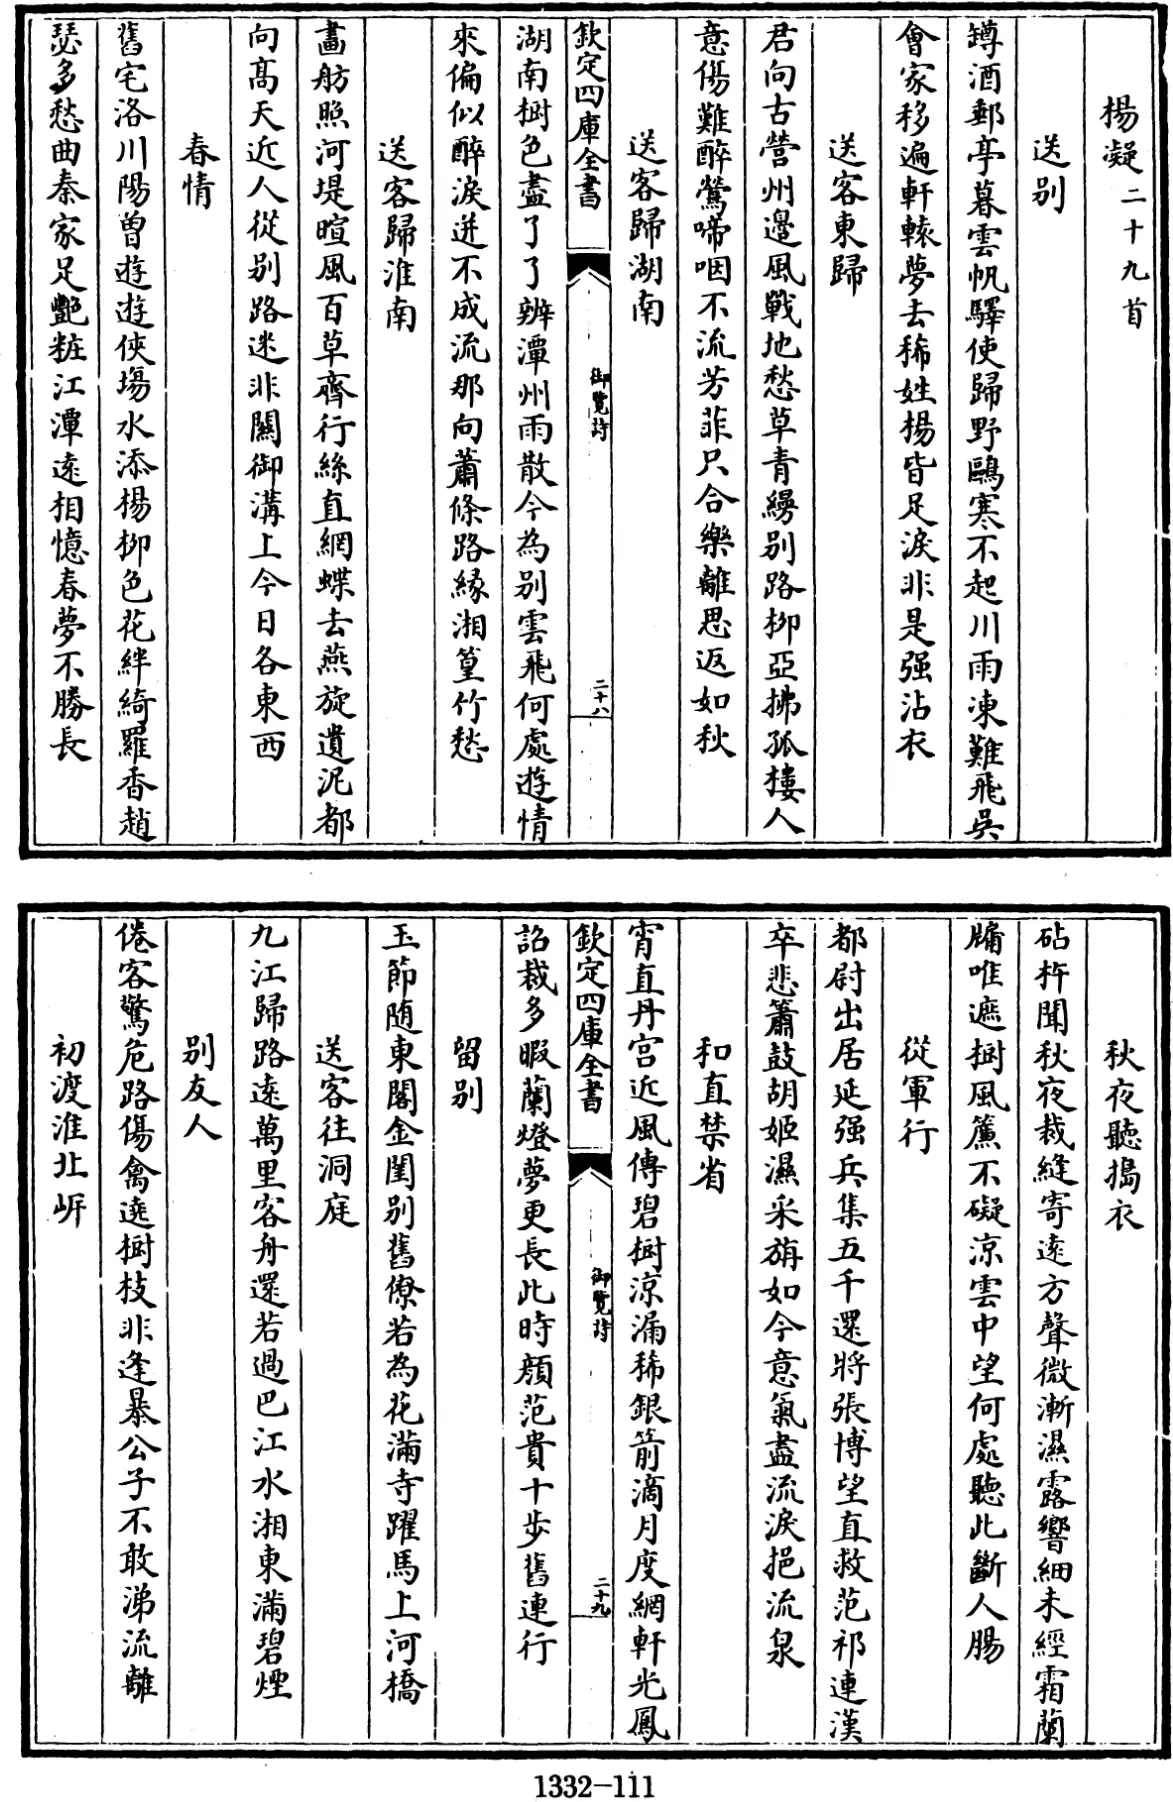 楊凝二十九首
送别
罇酒郵亭暮雲帆驛使歸野鷗寒不起川雨凍難飛吳
會家移遍軒轅夢去稀姓揚皆足淚非是强沾衣
送客東歸
君向古營州邉風戰地愁草青縵别路栁亞拂孤樓人
意傷難醉鶯啼咽不流芳菲只合樂離思返如秋
送客歸湖南
欽定四庫全書
御覽詩
二十八
湖南樹色盡了了辨潭州雨散今為别雲飛何處遊情
來偏似醉淚迸不成流那向蕭條路緣湘篁竹愁
送客歸淮南
畵舫照河堤暄風百草齊行絲直網蝶去燕旋遺泥都
向髙天近人從别路迷非關御溝上今日各東西
春情
舊宅洛川陽曽遊遊俠塲水添楊栁色花絆綺羅香趙
瑟多愁曲秦家足艶粧江潭逺相憶春夢不勝長
秋夜聽搗衣
砧杵聞秋夜裁縫寄逺方聲微漸濕露響細未經霜蘭
牖唯遮樹風簾不礙涼雲中望何處聽此斷人腸
從軍行
都尉出居延强兵集五千還將張博望直救范祁連漢
卒悲簫鼓胡姬濕采旃如今意氣盡流淚挹流泉
和直禁省
宵直丹宫近風傳碧樹涼漏稀銀箭滴月度網軒光鳳
欽定四庫全書
御覽詩
二十九
詔裁多暇蘭燈夢更長此時顔范貴十步舊連行
留别
玉節随東閣金閨别舊僚若為花滿寺躍馬上河橋
送客往洞庭
九江歸路逺萬里客舟還若過巴江水湘東滿碧煙
别友人
倦客驚危路傷禽遶樹枝非逢暴公子不敢涕流離
初渡淮北岍
1332-111